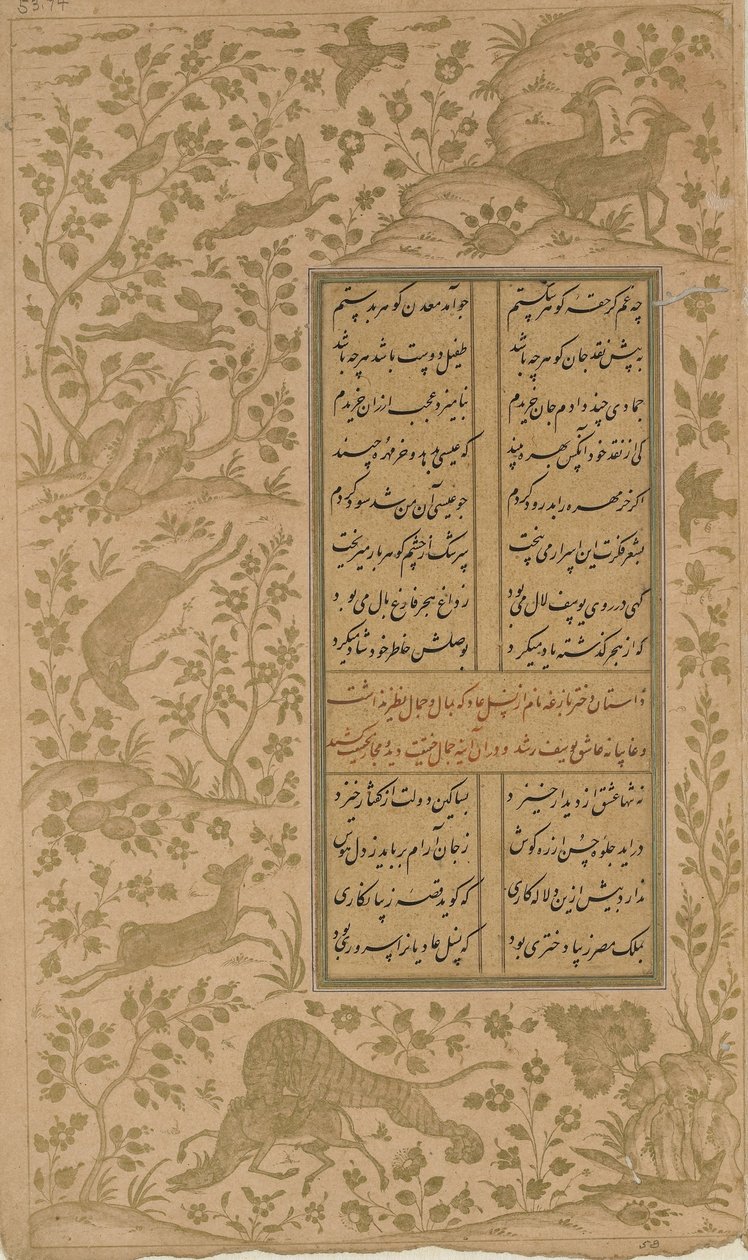 53.74
چه غم گر حقهٔ گوهر شکستم چو آمد معدن گوهر بدستم
به پیش نقد جان گوهر چه باشد طفیل دوست باشد هر چه باشد
جمادی چند دادم جان خریدم بنامیزد عجب ارزان خریدم
کی از نقد خود آنکس بهره بیند که عیسی بدهد و خرمهره چیند
اگر خرمهره را بدرود کردم چو عیسی آن من شد سود کردم
بشعر فکرت این اسرار می بیخت سرشک از چشم گوهربار میریخت
گهی در روی یوسف لال می بود ز داغ هجر فارغ بال می بود
گه از هجر گذشته یاد میکرد بوصلش خاطر خود شاد میکرد
داستان دختر بازغه نام از نسل عاد که بمال و جمال نظیر نداشت
و غایبانه عاشق یوسف شد و در آن آینه جمال حقیقت دید
نه تنها عشق از دیدار خیزد بسا کین دولت از گفتار خیزد
درآید جلوه حسن از ره گوش ز جان آرام برباید ز دل هوش
ندارد پیش ازین دلاله کاری که گوید قصه زیبا نگاری
بملک مصر زیبا دختری بود که نسل عادیانرا سروری بود
58